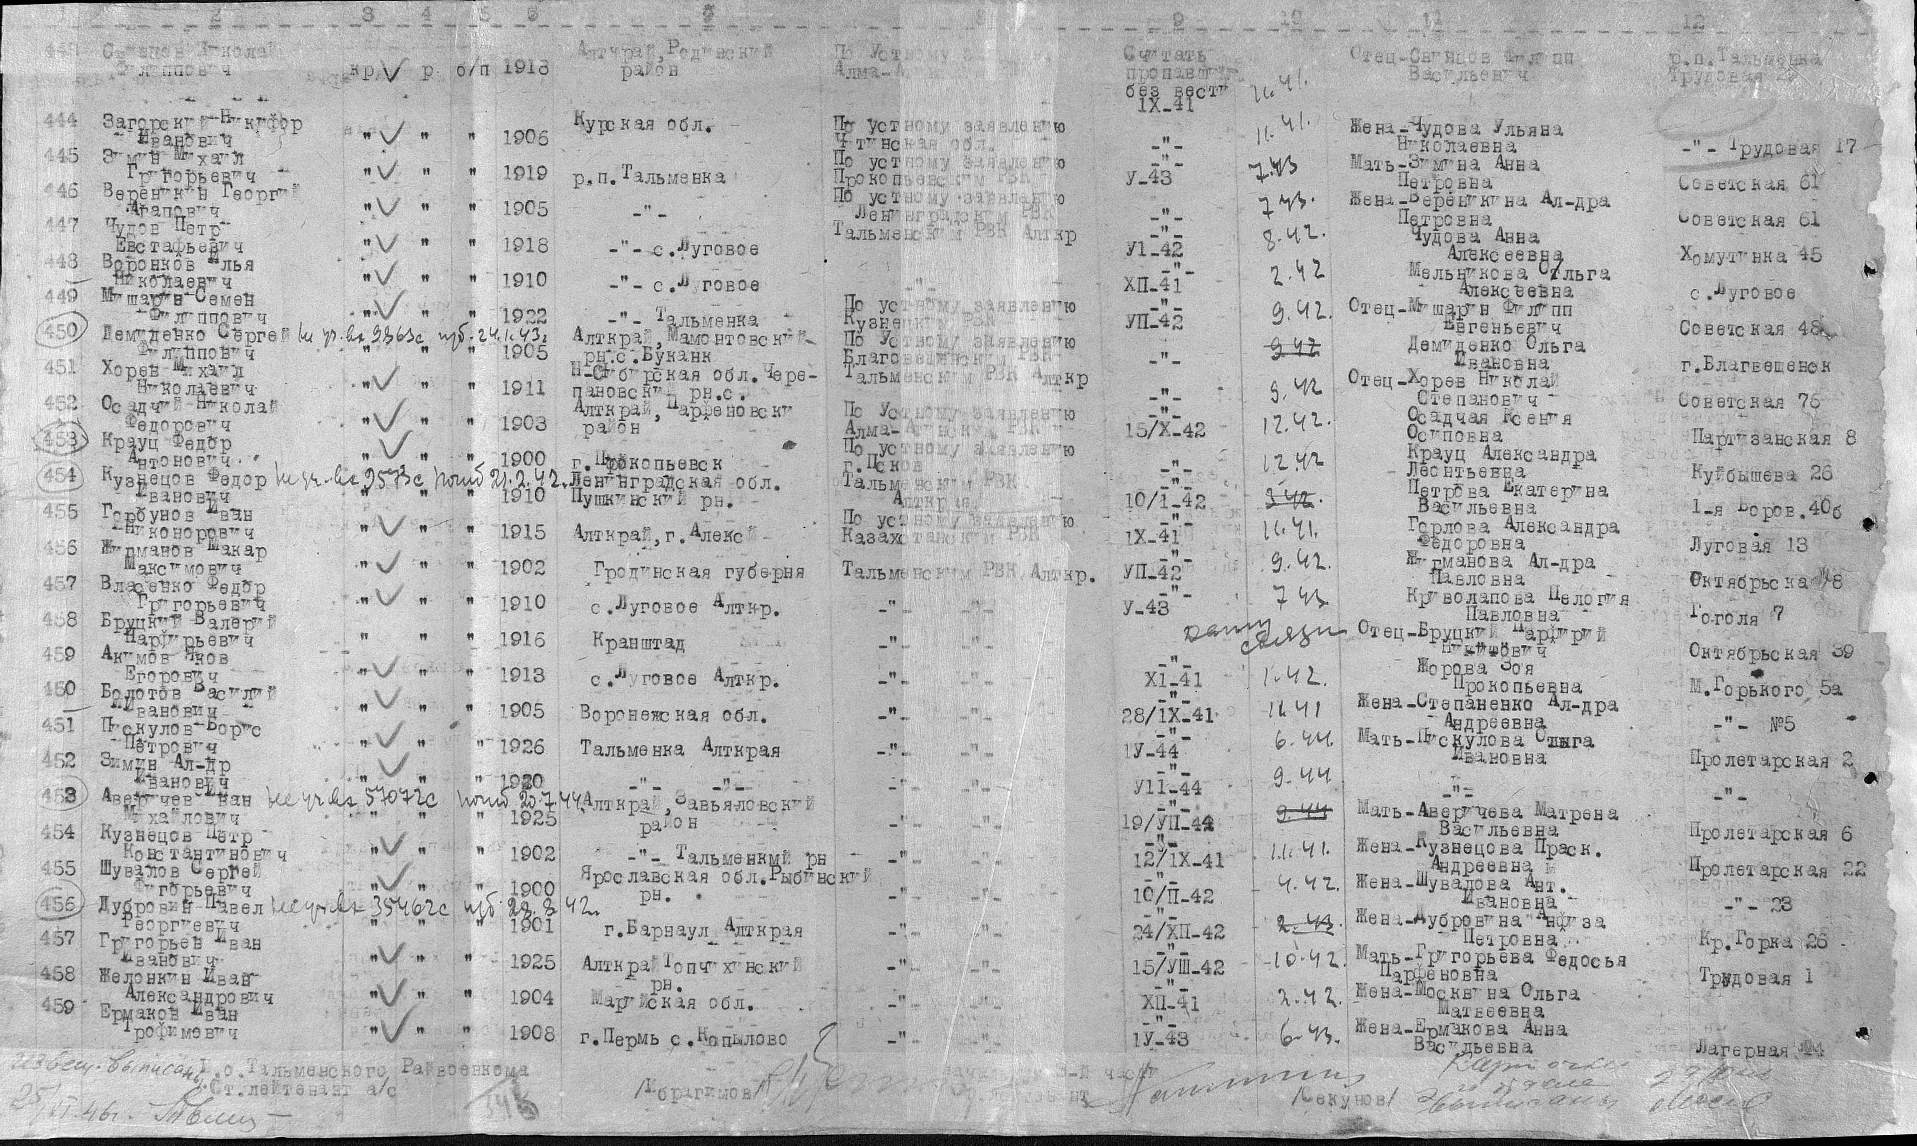 2 3 4 5 6 7 8 9 10 11 12
443 Николай Алткрай, Родинский По Устному Считать Отец-Свинцов Филипп р.п.Тальменка
Филиппович кр р б/п 1913 район Алма-А пропавшим Васильевич Трудовая
без вести
IX-41 11.41.
444 Загорский Никифор Курская обл. По устному заявлению 11.41. Жена-Чудова Ульяна
Иванович " " " 1906 Читинская обл. -"- Николаевна -"- Трудовая 17
445 Зимин Михаил По устному заявлению 7.43 Мать-Зимина Анна
Григорьевич " " " 1919 р.п.Тальменка Прокопьевским РВК У-43 Петровна Советская 61
446 Вереникин Георгий По устному заявлению 7.43. Жена-Вереникина Ал-дра
Агапович " " " 1905 -"- Ленинградским РВК -"- Петровна Советская 61
447 Чудов Петр Тальменским РВК Алткр -"- 8.42. Чудова Анна
Евстафьевич " " " 1918 -"- с.Луговое У1-42 Алексеевна Хомутинка 45
448 Воронков Илья -"- 2.42 Мельникова Ольга
Николаевич " " " 1910 -"- с.Луговое -"- ХП-41 Алексеевна с.Луговое
449 Мишарин Семен По устному заявлению -"- 9.42. Отец-Мишарин Филипп
Филиппович " " " 1922 -"- Тальменка Кузнецким РВК УП-42 Евгеньевич Советская 48
450 Демиденко Сергей 9863с 24.1.43г Алткрай, Мамонтовский По Устному заявлению 9.42 Демиденко Ольга
Филиппович " " " 1905 рн.с.Буканк Благовещенским РВК -"- Ивановна г.Благвещенск
451 Хорен Михаил Н-Сибирская обл.Чере- Тальменским РВК Алткр 9.42 Отец-Хорев Николай
Николаевич " " " 1911 пановский рн.с. -"- Степанович Советская 76
452 Осадчий Николай Алткрай, Парфеновски По Устному заявлению -"- 12.42. Осадчая Ксения
Федорович " " " 1903 район Алма-Атинским РВК 15/Х-42 Осиповна Партизанская 8
453 Крауц Федор По устному заявлению 12.42 Крауц Александра
Антонович " " " 1900 г.Прокопьевск г.Псков -"- Леонтьевна Куйбышева 26
454 Кузнецов Федор 9573с погиб 21.2.42. Ленинградская обл. Тальменским РВК -"- 3.42. Петрова Екатерина
Иванович " " " 1910 Пушкинский рн. Алткрая 10/1-42 Васильевна 1-я Боров.40б
455 Горбунов Иван По устному заявлению -"- 11.41. Горлова Александра
Никонорович " " " 1915 Алткрай,г.Алекс Казахстанским РВК 1Х-41 Федоровна Луговая 13
456 Жирманов Макар -"- 9.42. Жирманова Ал-дра
Максимович " " " 1902 Гродинская губерня Тальменским РВК Алткр. УП-42 Павловна Октябрьска 8
457 Власенко Федор -"- 7.43 Криволапова Пелогия
Григорьевич " " " 1910 с.Луговое Алткр. -"- -"- У-43 Павловна Гоголя 7
458 Бруцкий Валерий связи Отец-Бруцкий Парфирий
Парфирьевич " " " 1916 Кранштад -"- -"- -"- Никитович Октябрьская 39
459 Акимов Яков 1.42. Жорова Зоя
Егорович " " " 1913 с.Луговое Алткр. -"- -"- Х1-41 Прокопьевна М.Горького 5а
450 Болотов Василий -"- 11.41 Жена-Степаненко Ал-дра
Иванович " " " 1905 Воронежская обл. -"- -"- 28/1Х-41 Андреевна -"- №5
451 Пискулов Борис -"- 6.44. Мать-Пискулова Ольга
Петрович " " " 1926 Тальменка Алткрая -"- -"- 1У-44 Ивановна Пролетарская 2
452 Зимин Ал-др -"- 9.44
Иванович " " " 1920 -"- -"- У11-44 -"- -"-
453 Аверичев Иван 51072с погиб 25.7.44. Алткрай, Завьяловский -"- 9.44 Мать-Аверичева Матрена
Михайлович " " " 1925 район -"- -"- 19/УП-44 Васильевна Пролетарская 6
454 Кузнецов Петр -"- 11.41. Жена-Кузнецова Праск.
Константинович " " " 1902 -"- Тальменкий рн -"- -"- 12/1Х-41 Андреевна Пролетарская 22
455 Шувалов Сергей Ярославская обл.Рыбинский 4.42. Жена-Шувалова Ант.
Фигорьевич " " " 1900 рн. -"- -"- 10/П-42 Ивановна -"- 23
456 Дубровин Павел 35462с 28.8.42. -"- 2.43 Жена-Дубровина Анфиза
Георгиевич " " " 1901 г.Барнаул Алткрая -"- -"- 24/ХП-42 Петровна Кр.Горка 26
457 Григорьен Иван -"- 10.42. Мать-Григорьева Федосья
Иванович " " " 1925 Алткрай Топчихинский рн. -"- -"- 15/УШ-42 Парфеновна Трудовая 1
458 Желонкин Иван -"- 2.42. Жена-Москвина Ольга
Александрович " " " 1904 Марийская обл. -"- -"- ХП-41 Матвеевна
459 Ермаков Иван -"- 6.43. Жена-Ермакова Анна
Трофимович " " " 1908 г.Пермь с.Копылово -"- -"- 1У-43 Васильевна Лагерная 44
Извещ. выписаны В.о.Тальменского Райвоенкома 3-й части
Ст.лейтенант а/с /Ибрагимов/ /Секунов/